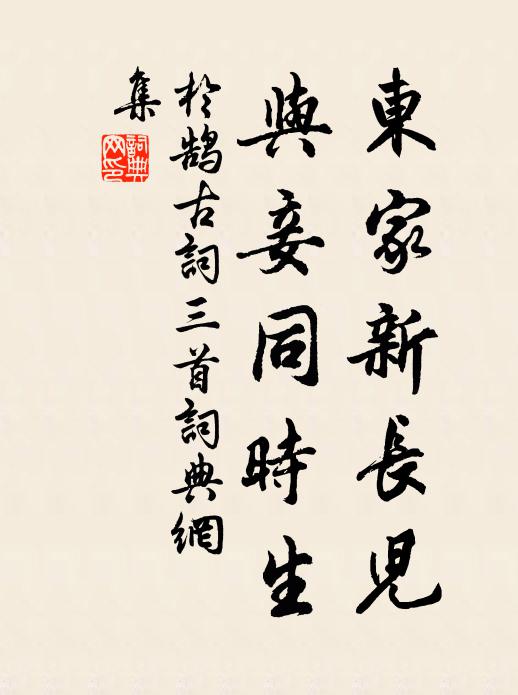 東家新長兒
與妾同時生
於鵠古詞三首詞典網
集
詞典
网印